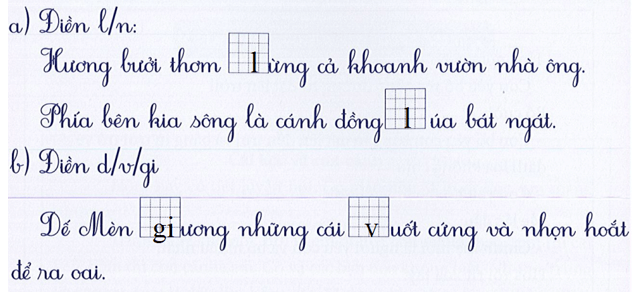 a) Điền l/n:
Hương bưởi thơm lừng cả khoanh vườn nhà ông.
Phía bên kia sông là cánh đồng lúa bát ngát.
b) Điền d/v/gi
Dế Mèn giương những cái vuốt cứng và nhọn hoắt
để ra oai.